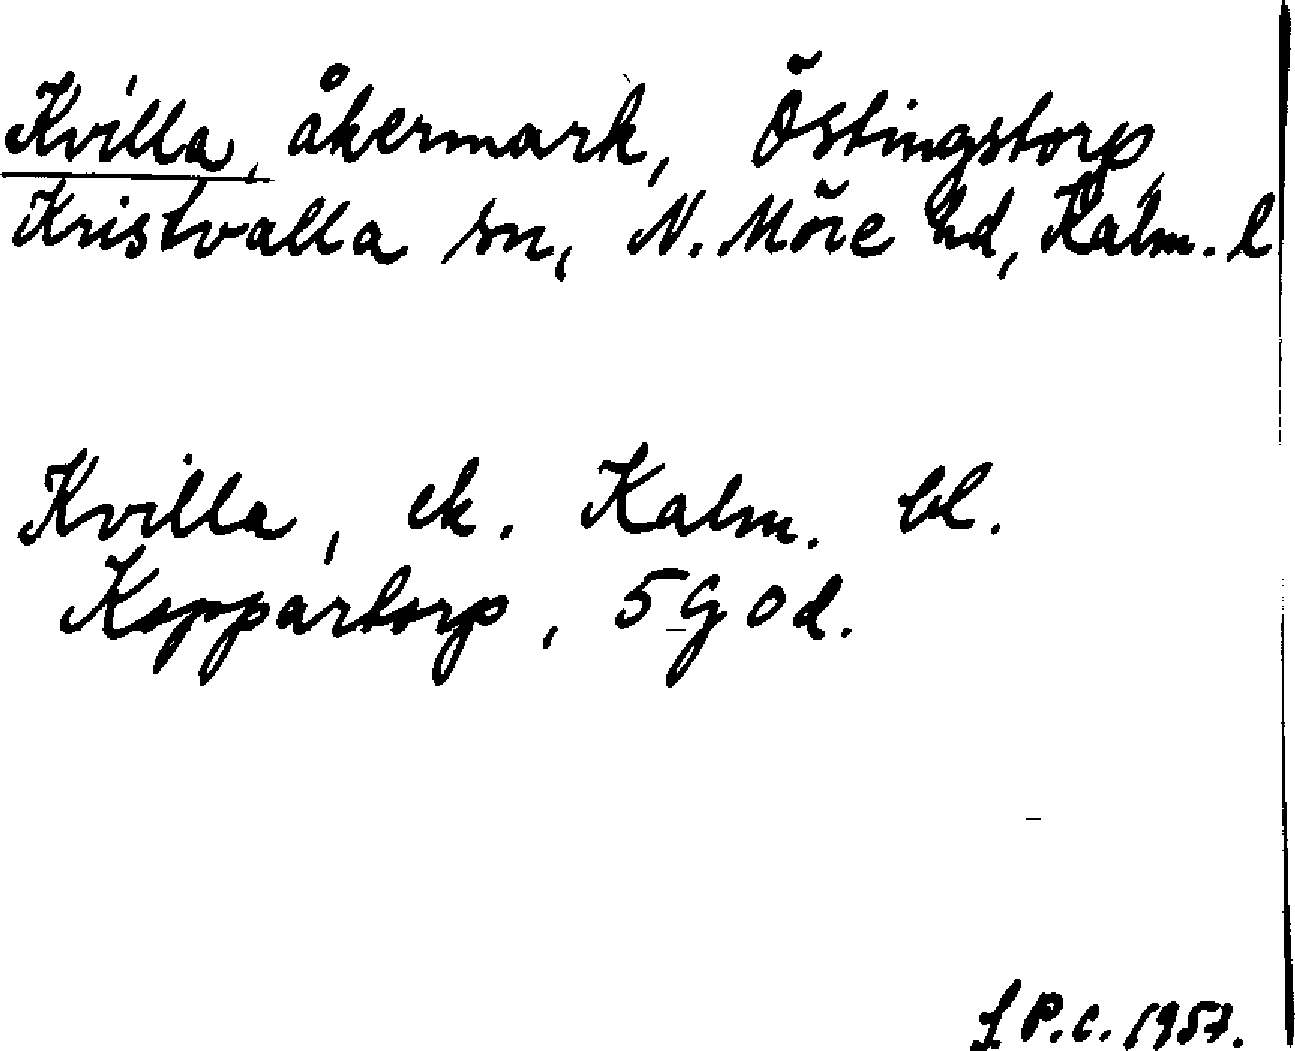 Kvilla, åkermark, Östingstorp
Kristvalla sn, N. Möre hd, Kalm. l
Kvilla, ek. Kalm. bl.
Koppartorp, 5 G 0 d.
S P.C. 1957.